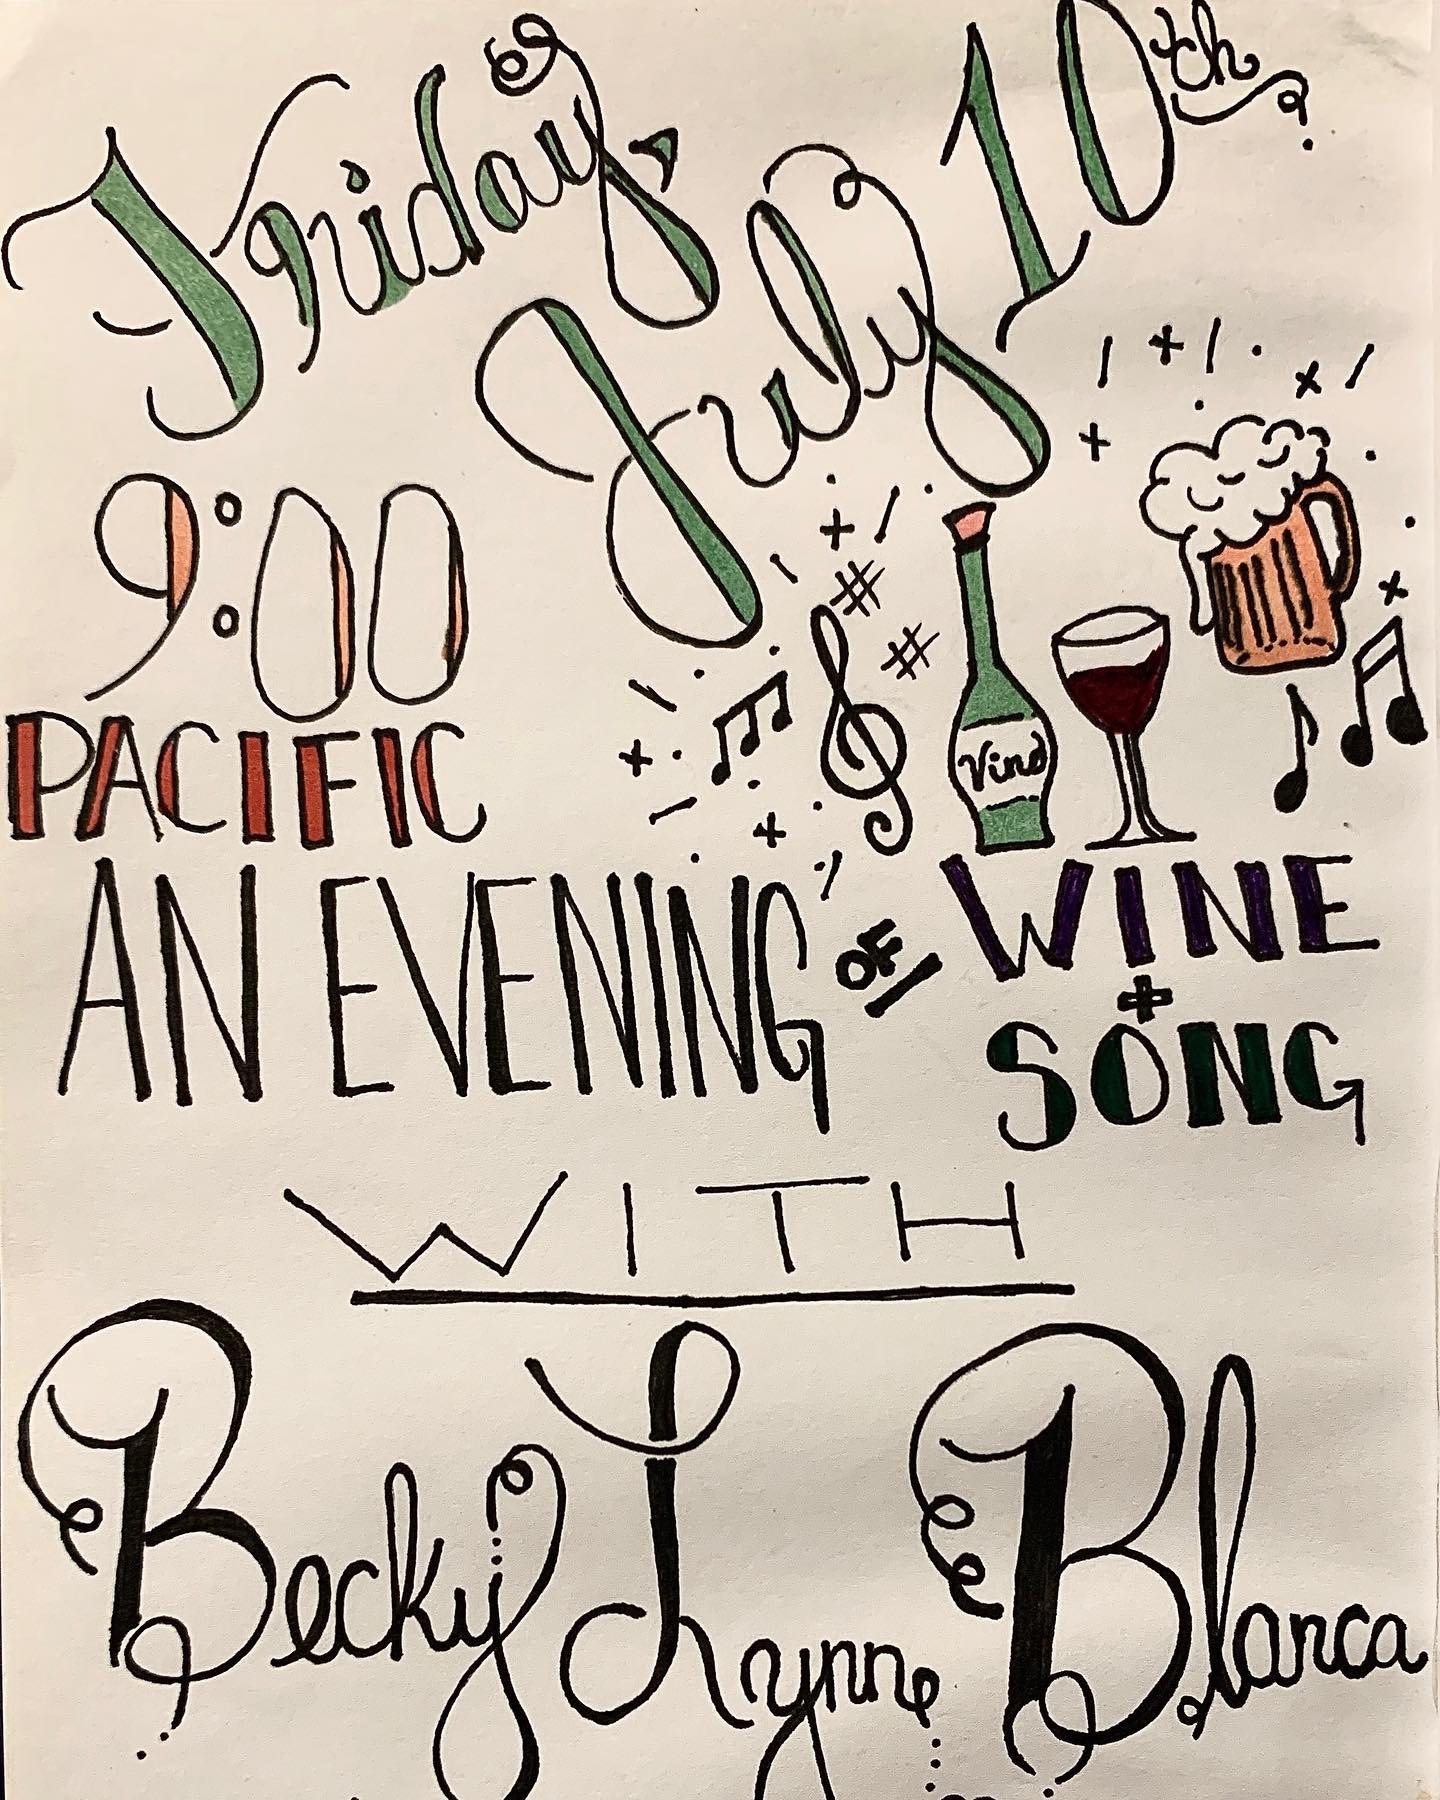 Friday,
July 10th
9:00
PACIFIC
Vino
AN EVENING OF WINE
+
SONG
WITH
Becky Lynn Blanca